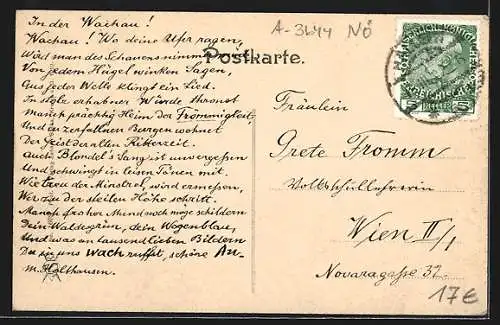 In der Wachau!
Wachau! Wo deine Ufer ragen,
Wird man des Schauens nimmer
Von jedem Hügel winken Sagen,
Aus jeder Welle klingt ein Lied.
In stolz erhabner Würde thronet
Manch prächtig Heim der Frömmigkeit,
Und in zerfallnen Burgen wohnet
Der Geist der alten Ritterzeit.
Auch Blondel's Sang ist unvergessen
Und schwingt in leisen Tönen mit.
Wie treu der Minstrel, wird ermessen,
Wer zu der steilen Höhe schritt.
Manch froher Mund noch möge schildern
Dein Waldesgrün, dein Wogenblau,
Und was an tausendlichen Bildern
Du uns wach ruffst, schöne Au.
M. Halthausen.
A-3644 NÖ
Postkarte.
5 HELLER 5
Fräulein
Grete Fromm
Volksschullehrerin
Wien II/1
Novaragasse 32
17€